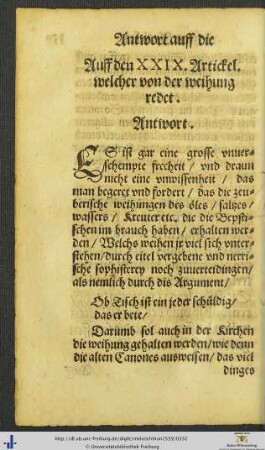 Antwort auff die
Auff den XXIX. Artickel,
welcher von der weihung
redet.
Antwort.
ES ist gar eine grosse vnuer-
schempte frecheit / vnd draun
nicht eine vnwissenheit / das
man begeret vnd fordert / das die zeu-
berische weihungen des öles / saltzes /
wassers / Kreuter etc. die die Bepsti-
schen im brauch haben / erhalten wer-
den / Welchs weihen jr viel sich vnter-
stehen / durch eitel vergebene vnd nerri-
sche sophisterey noch zuuerteidingen /
als nemlich durch dis Argument /
Ob Tisch ist ein jeder schüldig /
das er bete /
Darumb sol auch in der Kirchen
die weihung gehalten werden / wie denn
die alten Canones ausweisen / das viel
dinges
http://dl.ub.uni-freiburg.de/diglit/melanchthon1559/0332
© Universitätsbibliothek Freiburg
Baden-Württemberg